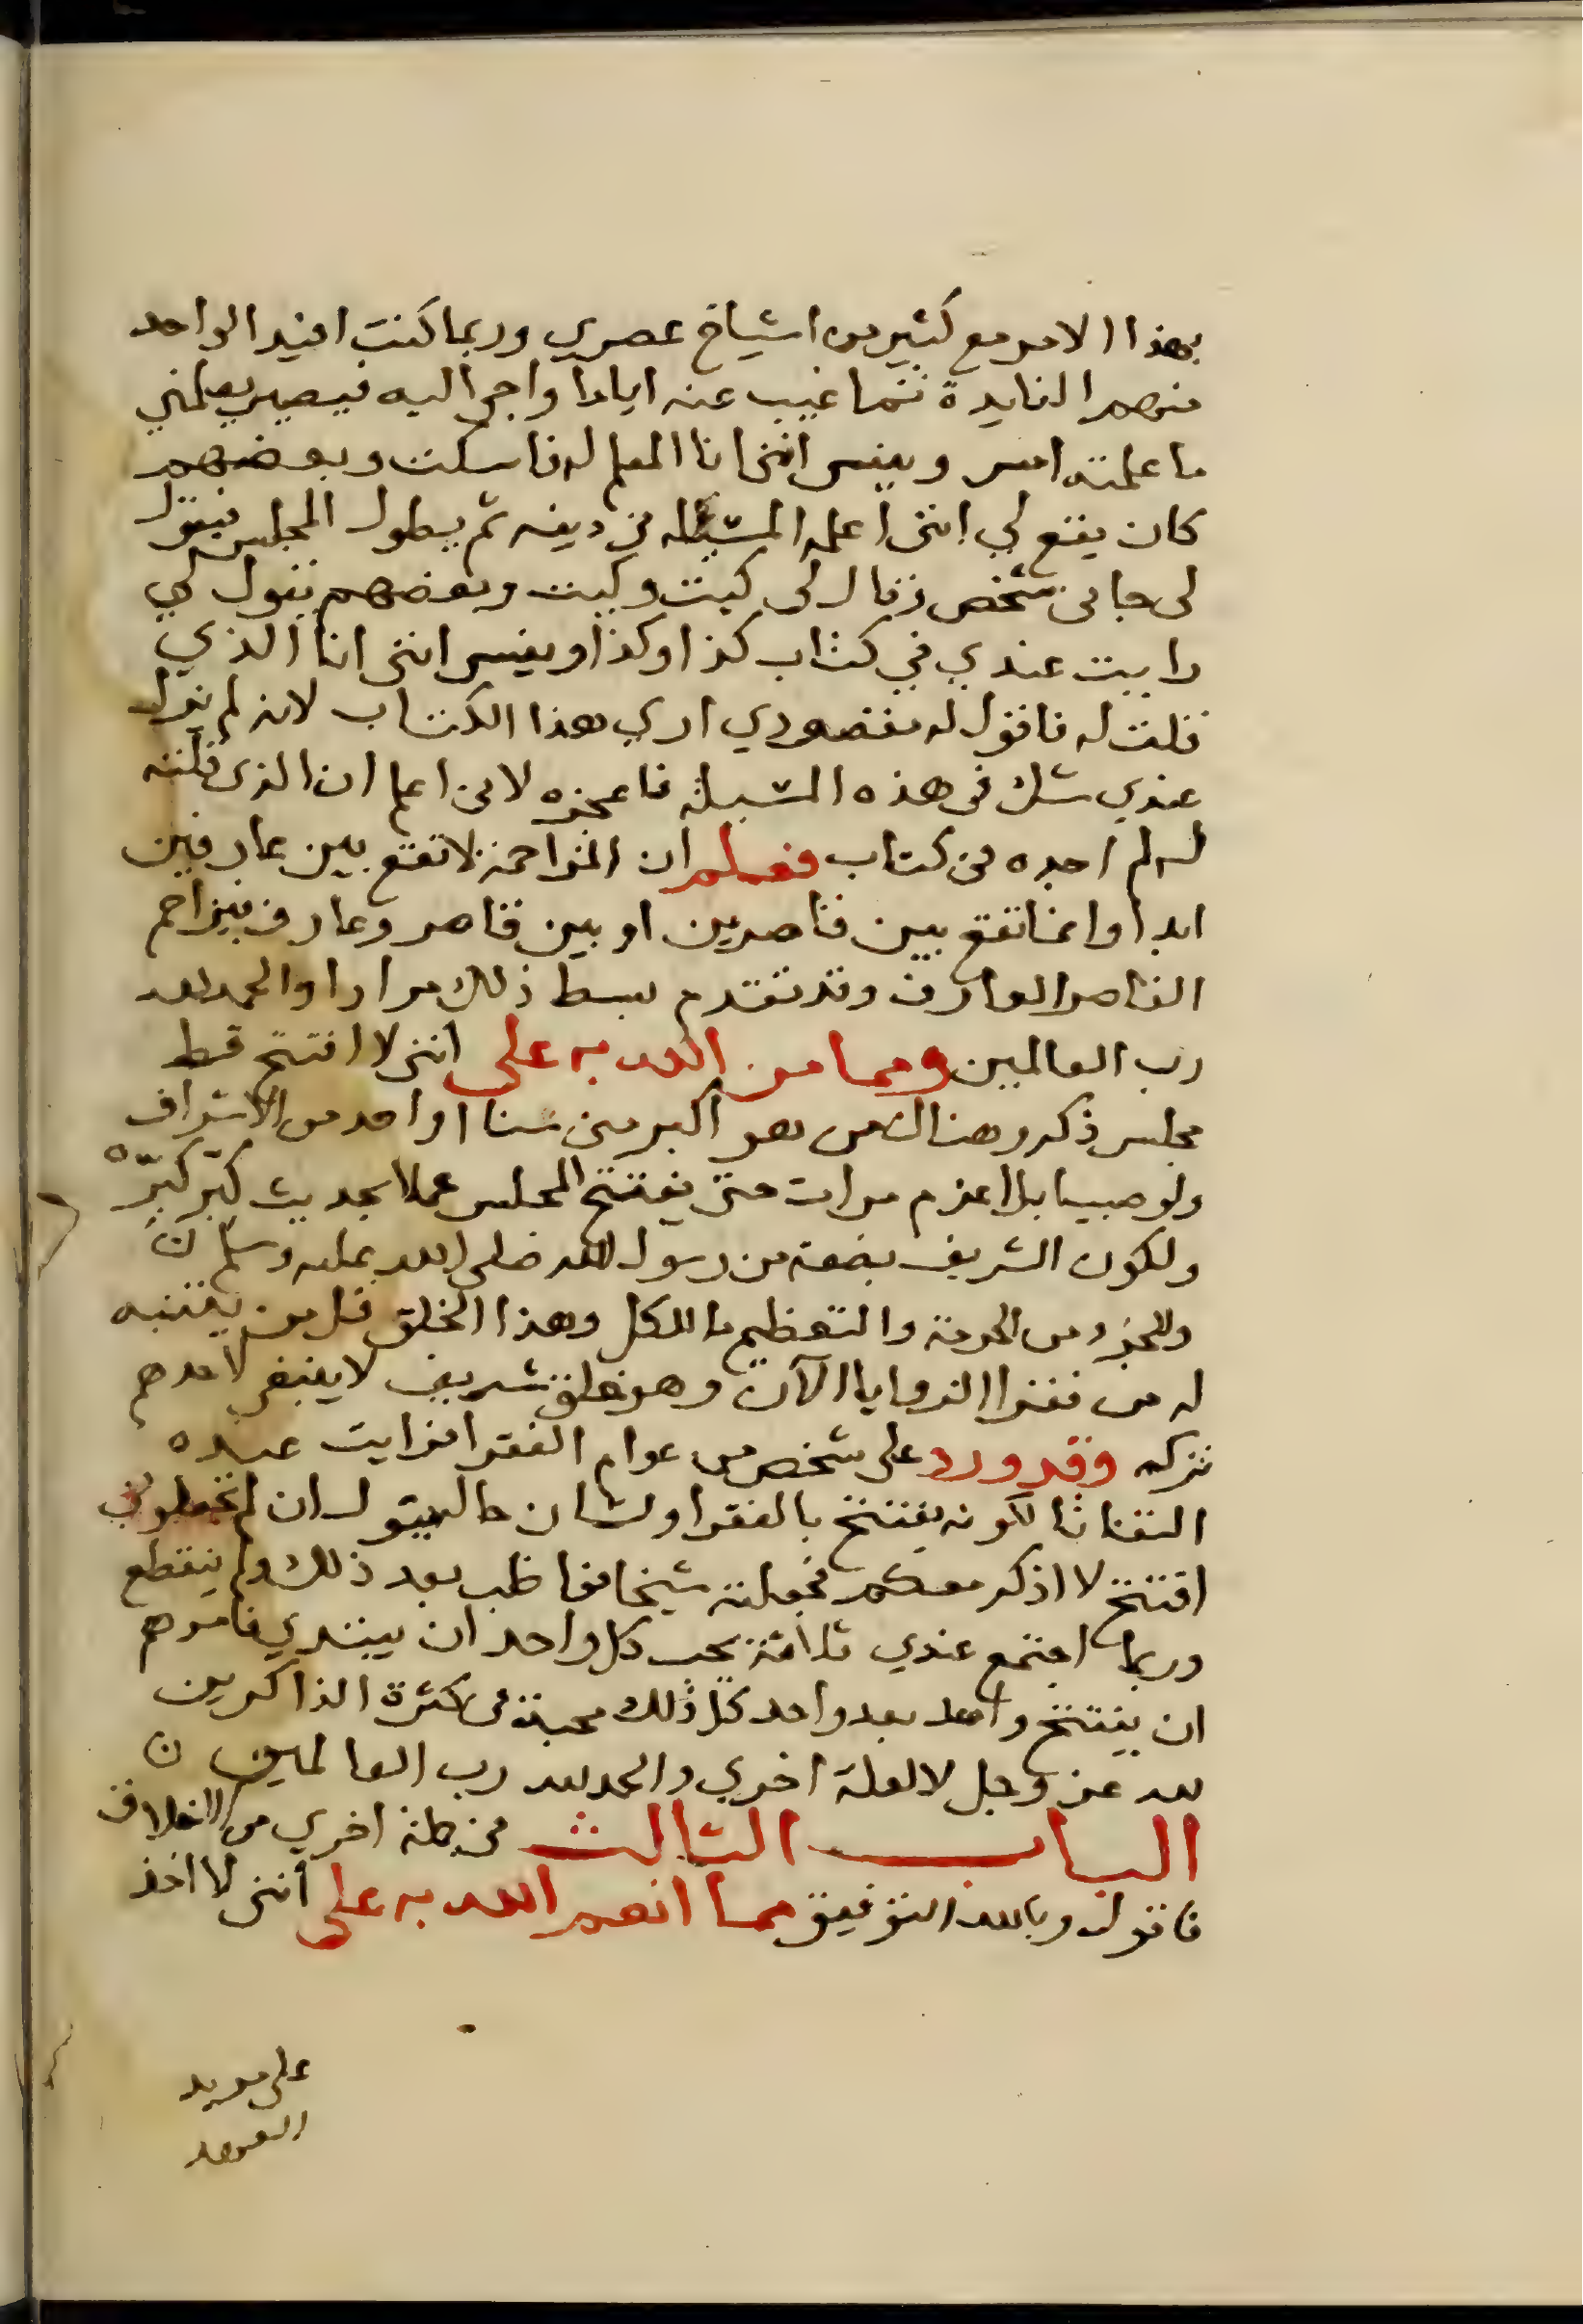 بهذا الامر مع كثير من اشياخ عصري وربما كنت افيد الواحد
منهم الفايدة ثم اغيب عنه اياما واجي اليه فيصير يعلمني
ما علمته امس وينسى انني انا المعلم له فاسكت وبعضهم
كان يقع لي انني اعلمه المسئلة في دينه ثم يطول المجلس فيقول
لى جانى شخص وقال لى كيت وكيت وبعضهم يقول لي
راييت عندي في كتاب كذا وكذا وينسى انني انا الذي
قلت له فاقول له مقصودي اري هذا الكتاب لانه لم يزل
عندي شك في هذه المسئلة فاعجزه لانى اعلم ان الذى قلته
له لم اجده فى كتاب فعلم ان المزاحمة لا تقع بين عارفين
ابدا وانما تقع بين قاصرين او بين قاصر وعارف فيزاحم
القاصر العارف وقد تقدم بسط ذلك مرارا والحمد لله
رب العالمين ومما من الله به على انني لا افتتح قط
مجلس ذكر وهناك من هو اكبر منى سنا او احد من الاشراف
ولو صبيا بل اعزم مرات حتى يفتتح المجلس عملا بحديث كبر كبر
ولكون الشريف بضعة من رسول الله صلى الله عليه وسلم ن
وللجزء من الحرمة والتعظيم ما للكل وهذا الخلق قل من يتنبه
له من فقرا الزوايا الآن وهو خلق شريف لا ينبغى لاحدهم
تركه وقد ورد على شخص من عوام الفقرا فرايت عنده
التفاتا لكونه يفتتح بالفقرا ولسان حاله يقول ان لم تجعلونى
افتتح لا اذكر معكم فجعلته شيخا فواظب بعد ذلك ولم ينقطع
وربما اجتمع عندي ثلاثة يحب كل واحد ان يبتدي فامرهم
ان يفتتح واحد بعد واحد كل ذلك محبة فى كثرة الذاكرين
لله عز وجل لا لعلة اخري والحمد لله رب العالمين ن
الباب الثالث فى جملة اخري من الاخلاق
فاقول وبالله التوفيق مما انعم الله به على انني لا اخذ
على مريد
العهد